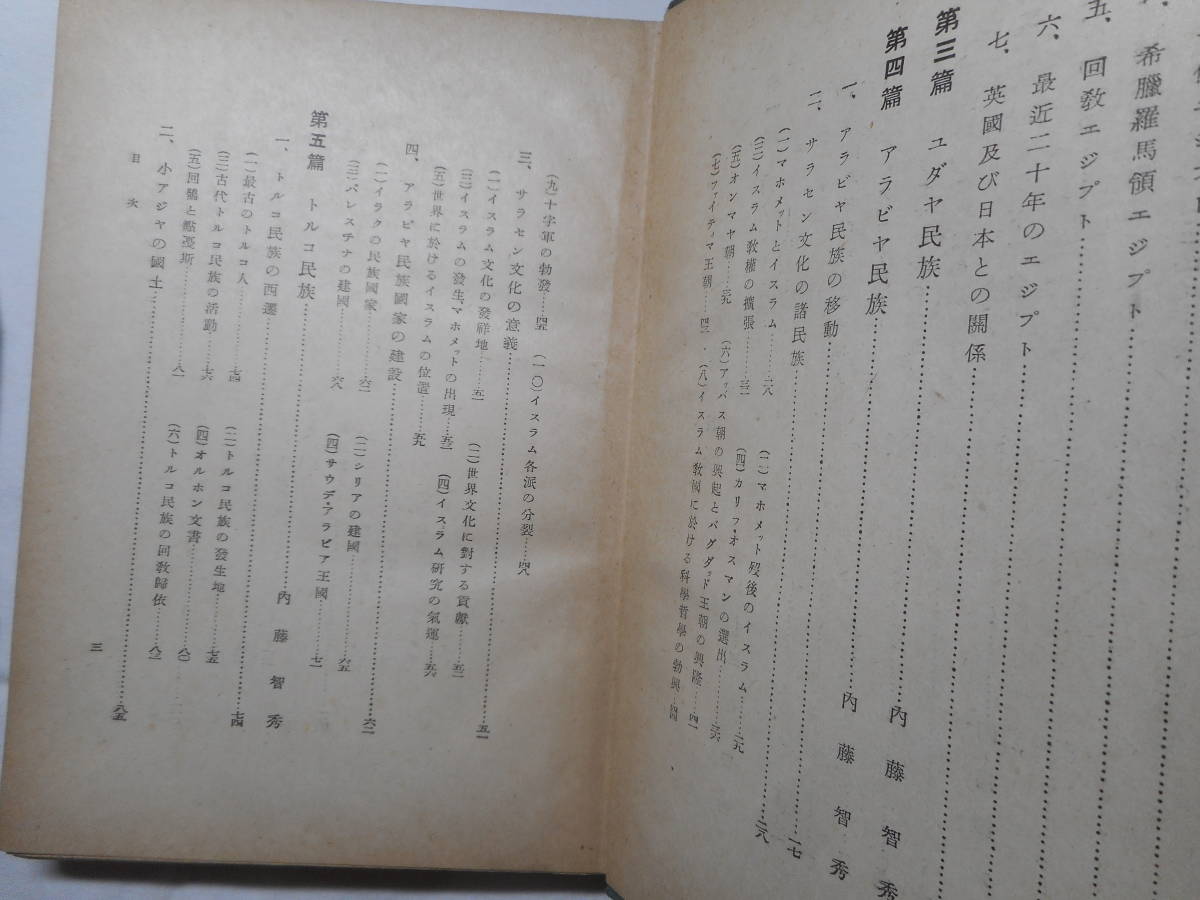 希臘羅馬領エジプト
五、回敎エジプト
六、最近二十年のエジプト
七、英國及び日本との關係
第三篇 ユダヤ民族 內藤智秀
第四篇 アラビヤ民族 內藤智秀
一、アラビヤ民族の移動 一七
二、サラセン文化の諸民族 二八
(一)マホメットとイスラム 二八 (二)マホメット歿後のイスラム 二九
(三)イスラム敎權の擴張 三二 (四)カリフ・オスマンの選出 三六
(五)オンマヤ朝 三九 (六)アッバス朝の興起とバグダッド王朝の興隆 四一
(七)ファイティマ王朝 四三 (八)イスラム敎國に於ける科學哲學の勃興 四四
(九)十字軍の勃發 四五 (一〇)イスラム各派の分裂 四八
三、サラセン文化の意義 五一
(一)イスラム文化の發祥地 五一 (二)世界文化に對する貢獻 五二
(三)イスラムの發生、マホメットの出現 五三 (四)イスラム硏究の氣運 五六
(五)世界に於けるイスラムの位置 五九
四、アラビヤ民族國家の建設 六二
(一)イラクの民族國家 六二 (二)シリアの建國 六五
(三)パレスチナの建國 六八 (四)サウデ・アラビア王國 七一
第五篇 トルコ民族 內藤智秀
一、トルコ民族の西遷 七四
(一)最古のトルコ人 七四 (二)トルコ民族の發生地 七五
(三)古代トルコ民族の活動 七六 (四)オルホン文書 八〇
(五)回鶻と黠戞斯 八一 (六)トルコ民族の回敎歸依 八三
二、小アジヤの國土 八五
目次
三